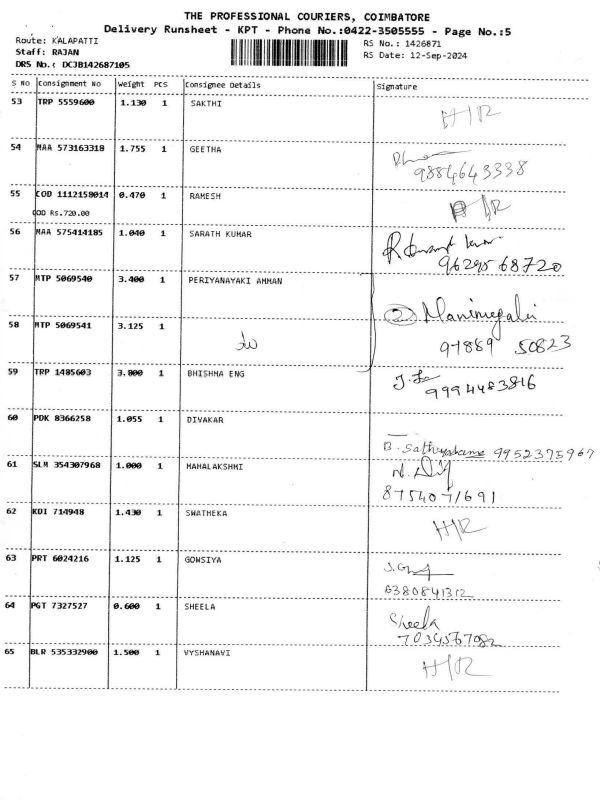 THE PROFESSIONAL COURIERS, COIMBATORE
Delivery Runsheet - KPT - Phone No.:0422-3505555 - Page No.:5
Route: KALAPATTI
RS No.: 1426871
Staff: RAJAN
RS Date: 12-Sep-2024
DRS No.: DCJB142687105
S No Consignment No Weight PCS Consignee Details Signature
53 TRP 5559600 1.130 1 SAKTHI H/R
54 MAA 573163318 1.755 1 GEETHA
9884643338
55 COD 1112158014 0.470 1 RAMESH H/R
COD Rs.720.00
56 MAA 575414185 1.040 1 SARATH KUMAR
9629568720
57 MTP 5069540 3.400 1 PERIYANAYAKI AMMAN
② Manimegalai
58 MTP 5069541 3.125 1
97889 50823
59 TRP 1485603 3.800 1 BHISHMA ENG
9994483816
60 PDK 8366258 1.055 1 DIVAKAR
B. 9952375967
61 SLM 354307968 1.000 1 MAHALAKSHMI
8754071691
62 KDI 714948 1.430 1 SWATHEKA H/R
63 PRT 6024216 1.125 1 GOWSIYA
6380841312
64 PGT 7327527 0.600 1 SHEELA Sheela
7034567082
65 BLR 535332900 1.500 1 VYSHANAVI H/R